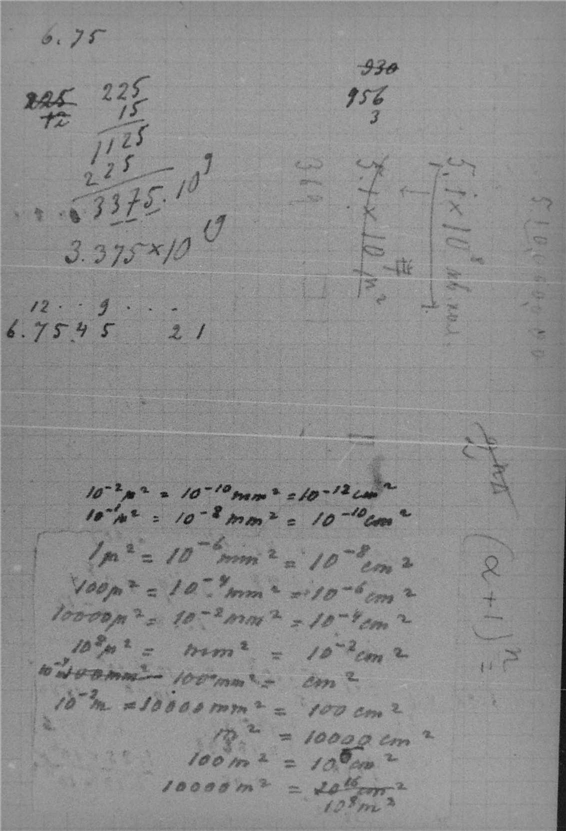 6.75
930
225 225
12 15
1125
225
3375.10⁹
3.375×10¹⁹
956
3
12 . . 9 . . . .
6.7545 21
5.1×10⁸
5.1×10 μ²
369
510,000,000
(α+1)ⁿ=
10⁻²μ² = 10⁻¹⁰mm² = 10⁻¹²cm²
10⁻¹μ² = 10⁻⁸mm² = 10⁻¹⁰cm²
1μ² = 10⁻⁶mm² = 10⁻⁸cm²
100μ² = 10⁻⁴mm² = 10⁻⁶cm²
10000μ² = 10⁻²mm² = 10⁻⁴cm²
10⁸μ² = mm² = 10⁻²cm²
100mm² = 100mm² = cm²
10⁻²m = 10000mm² = 100cm²
m² = 10000cm²
100m² = 10⁶cm²
10000m² = 2016cm²
10⁸m²